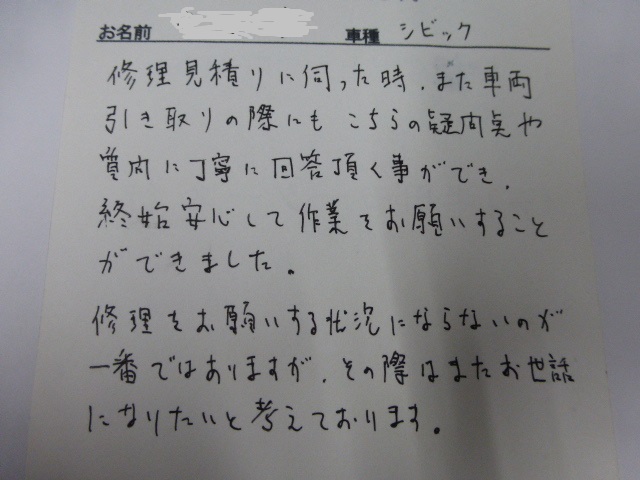 お名前 車種 シビック
修理見積りに伺った時、また車両
引き取りの際にも こちらの疑問点や
質問に丁寧に回答頂く事ができ、
終始安心して作業をお願いすること
ができました。
修理をお願いする状況にならないのが
一番ではありますが、その際はまたお世話
になりたいと考えております。